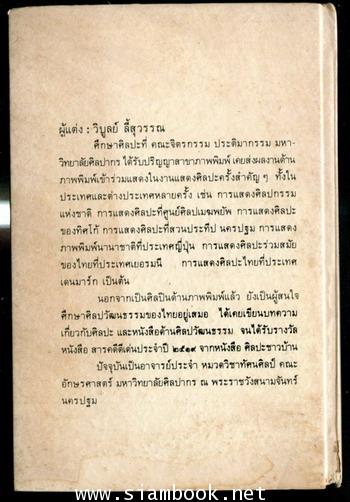 ผู้แต่ง : วิบูลย์ ลี้สุวรรณ
ศึกษาศิลปะที่ คณะจิตรกรรม ประติมากรรม มหา-
วิทยาลัยศิลปากร ได้รับปริญญาสาขาภาพพิมพ์ เคยส่งผลงานด้าน
ภาพพิมพ์เข้าร่วมแสดงในงานแสดงศิลปะครั้งสำคัญ ๆ ทั้งใน
ประเทศและต่างประเทศหลายครั้ง เช่น การแสดงศิลปกรรม
แห่งชาติ การแสดงศิลปะที่ศูนย์ศิลปเมฆพยัพ การแสดงศิลปะ
ของทิสโก้ การแสดงศิลปะที่สวนประทีป นครปฐม การแสดง
ภาพพิมพ์นานาชาติที่ประเทศญี่ปุ่น การแสดงศิลปะร่วมสมัย
ของไทยที่ประเทศเยอรมนี การแสดงศิลปะไทยที่ประเทศ
เดนมาร์ก เป็นต้น
นอกจากเป็นศิลปินด้านภาพพิมพ์แล้ว ยังเป็นผู้สนใจ
ศึกษาศิลปวัฒนธรรมของไทยอยู่เสมอ ได้เคยเขียนบทความ
เกี่ยวกับศิลปะ และหนังสือด้านศิลปวัฒนธรรม จนได้รับรางวัล
หนังสือ สารคดีดีเด่นประจำปี ๒๕๑๙ จากหนังสือ ศิลปะชาวบ้าน
ปัจจุบันเป็นอาจารย์ประจำ หมวดวิชาทัศนศิลป์ คณะ
อักษรศาสตร์ มหาวิทยาลัยศิลปากร ณ พระราชวังสนามจันทร์
นครปฐม
www.siambook.net